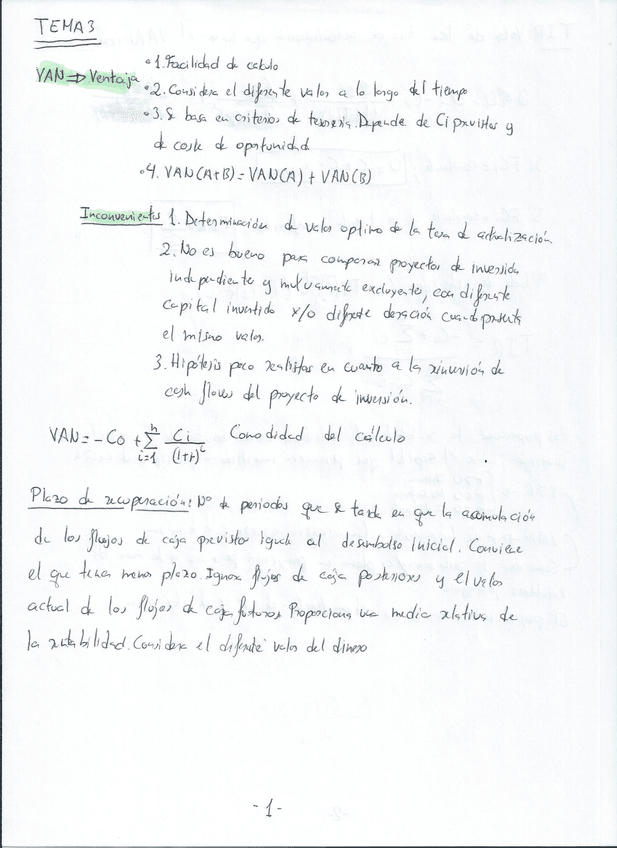 TEMA 3
VAN => Ventaja
1. Facilidad de calculo
2. Considera el diferente valor a lo largo del tiempo
3. Se basa en criterios de tesorería. Depende de Ci previstos y
de coste de oportunidad
4. VAN(A+B) = VAN(A) + VAN(B)
Inconvenientes 1. Determinación de valor optimo de la tasa de actualización.
2. No es bueno para comparar proyectos de inversión
independiente y mutuamente excluyente, con diferente
capital invertido y/o diferente duración cuando presente
el mismo valor.
3. Hipótesis poco realistas en cuanto a la reinversión de
cash flows del proyecto de inversión.
VAN = -Co + n∑i=1 Ci/(1+r)^i Comodidad del cálculo
Plazo de recuperación: Nº de periodos que se tarda en que la acumulación
de los flujos de caja previstos iguale al desembolso inicial. Conviene
el que tenga menos plazo. Ignora flujos de caja posteriores y el valor
actual de los flujos de caja futuros. Proporciona una media relativa de
la rentabilidad. Considera el diferente valor del dinero
- 1 -